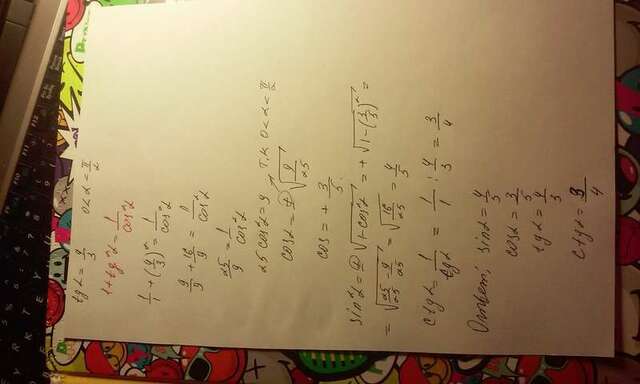 tgα = 4/3 0<α<π/2
1+tg²α = 1/cos²α
1/1 + (4/3)² = 1/cos²α
9/9 + 16/9 = 1/cos²α
25/9 = 1/cos²α
25cos²α = 9 т.к 0<α<π/2
cosα = ± √(9/25)
cos = + 3/5
sinα = ± √(1-cos²α) = + √(1-(3/5)²) =
= √(25/25 - 9/25) = √(16/25) = 4/5
ctgα = 1/tgα = 1/1 : 4/3 = 3/4
Ответ: sinα = 4/5
cosα = 3/5
tgα = 4/3
ctgα = 3/4